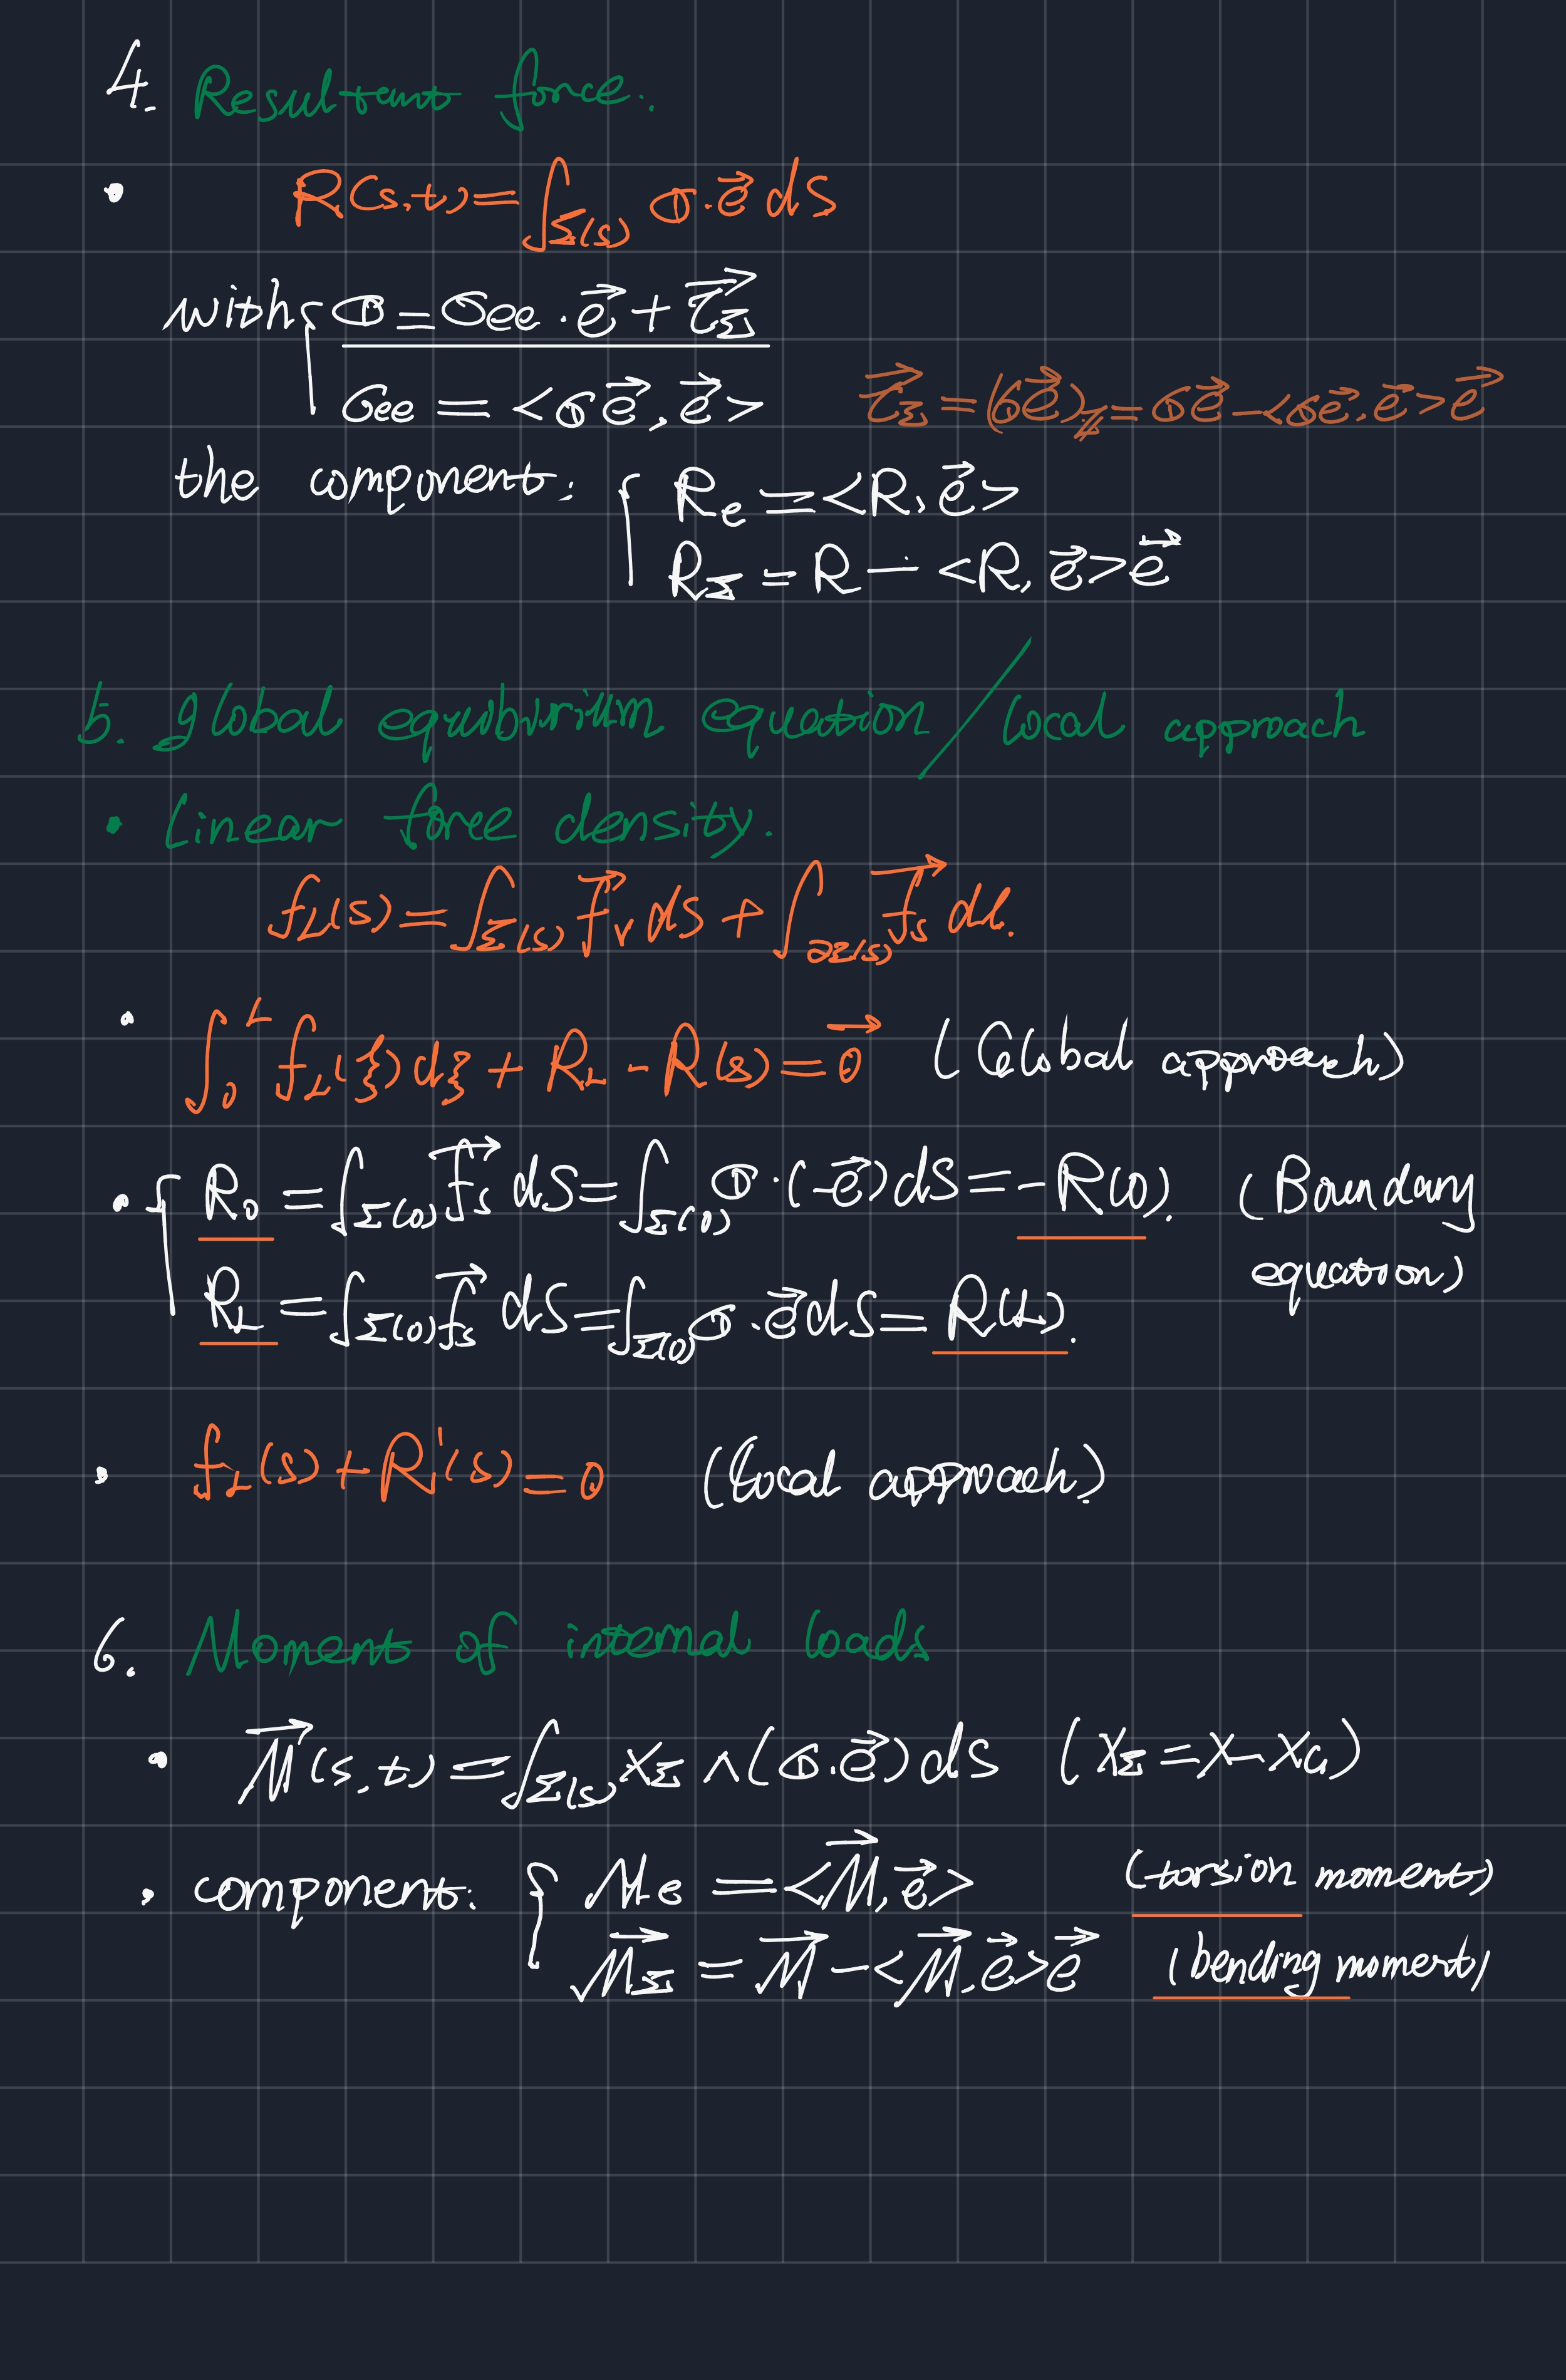 4. Resultant force.
• R(s,t) = ∫_Σ(s) σ·e⃗ dS
with { σ = σee · e⃗ + τ⃗_Σ
σee = <σe⃗, e⃗> τ⃗_Σ = (σe⃗)_Σ = σe⃗ − <σe⃗, e⃗>e⃗
the component: { R_e = <R, e⃗>
R_Σ = R − <R, e⃗>e⃗
5. global equibirium equation / local approach
• Linear force density.
f_L(s) = ∫_Σ(s) f⃗_V dS + ∫_∂Σ(s) f⃗_s dl.
• ∫_0^L f_L(ξ) dξ + R_L - R(s) = 0⃗ (Global approach)
• { R_0 = ∫_Σ(0) f⃗_s dS = ∫_Σ(0) σ·(-e⃗) dS = -R(0). (Boundary
equation)
R_L = ∫_Σ(0) f⃗_s dS = ∫_Σ(0) σ·e⃗ dS = R(L).
• f_L(s) + R'(s) = 0 (Local approach)
6. Moment of internal loads
• M⃗(s,t) = ∫_Σ(s) X_Σ ∧ (σ·e⃗) dS (X_Σ = X − X_G)
• component: { Me = <M⃗, e⃗> (torsion moment)
M⃗_Σ = M⃗ − <M⃗, e⃗>e⃗ (bending moment)